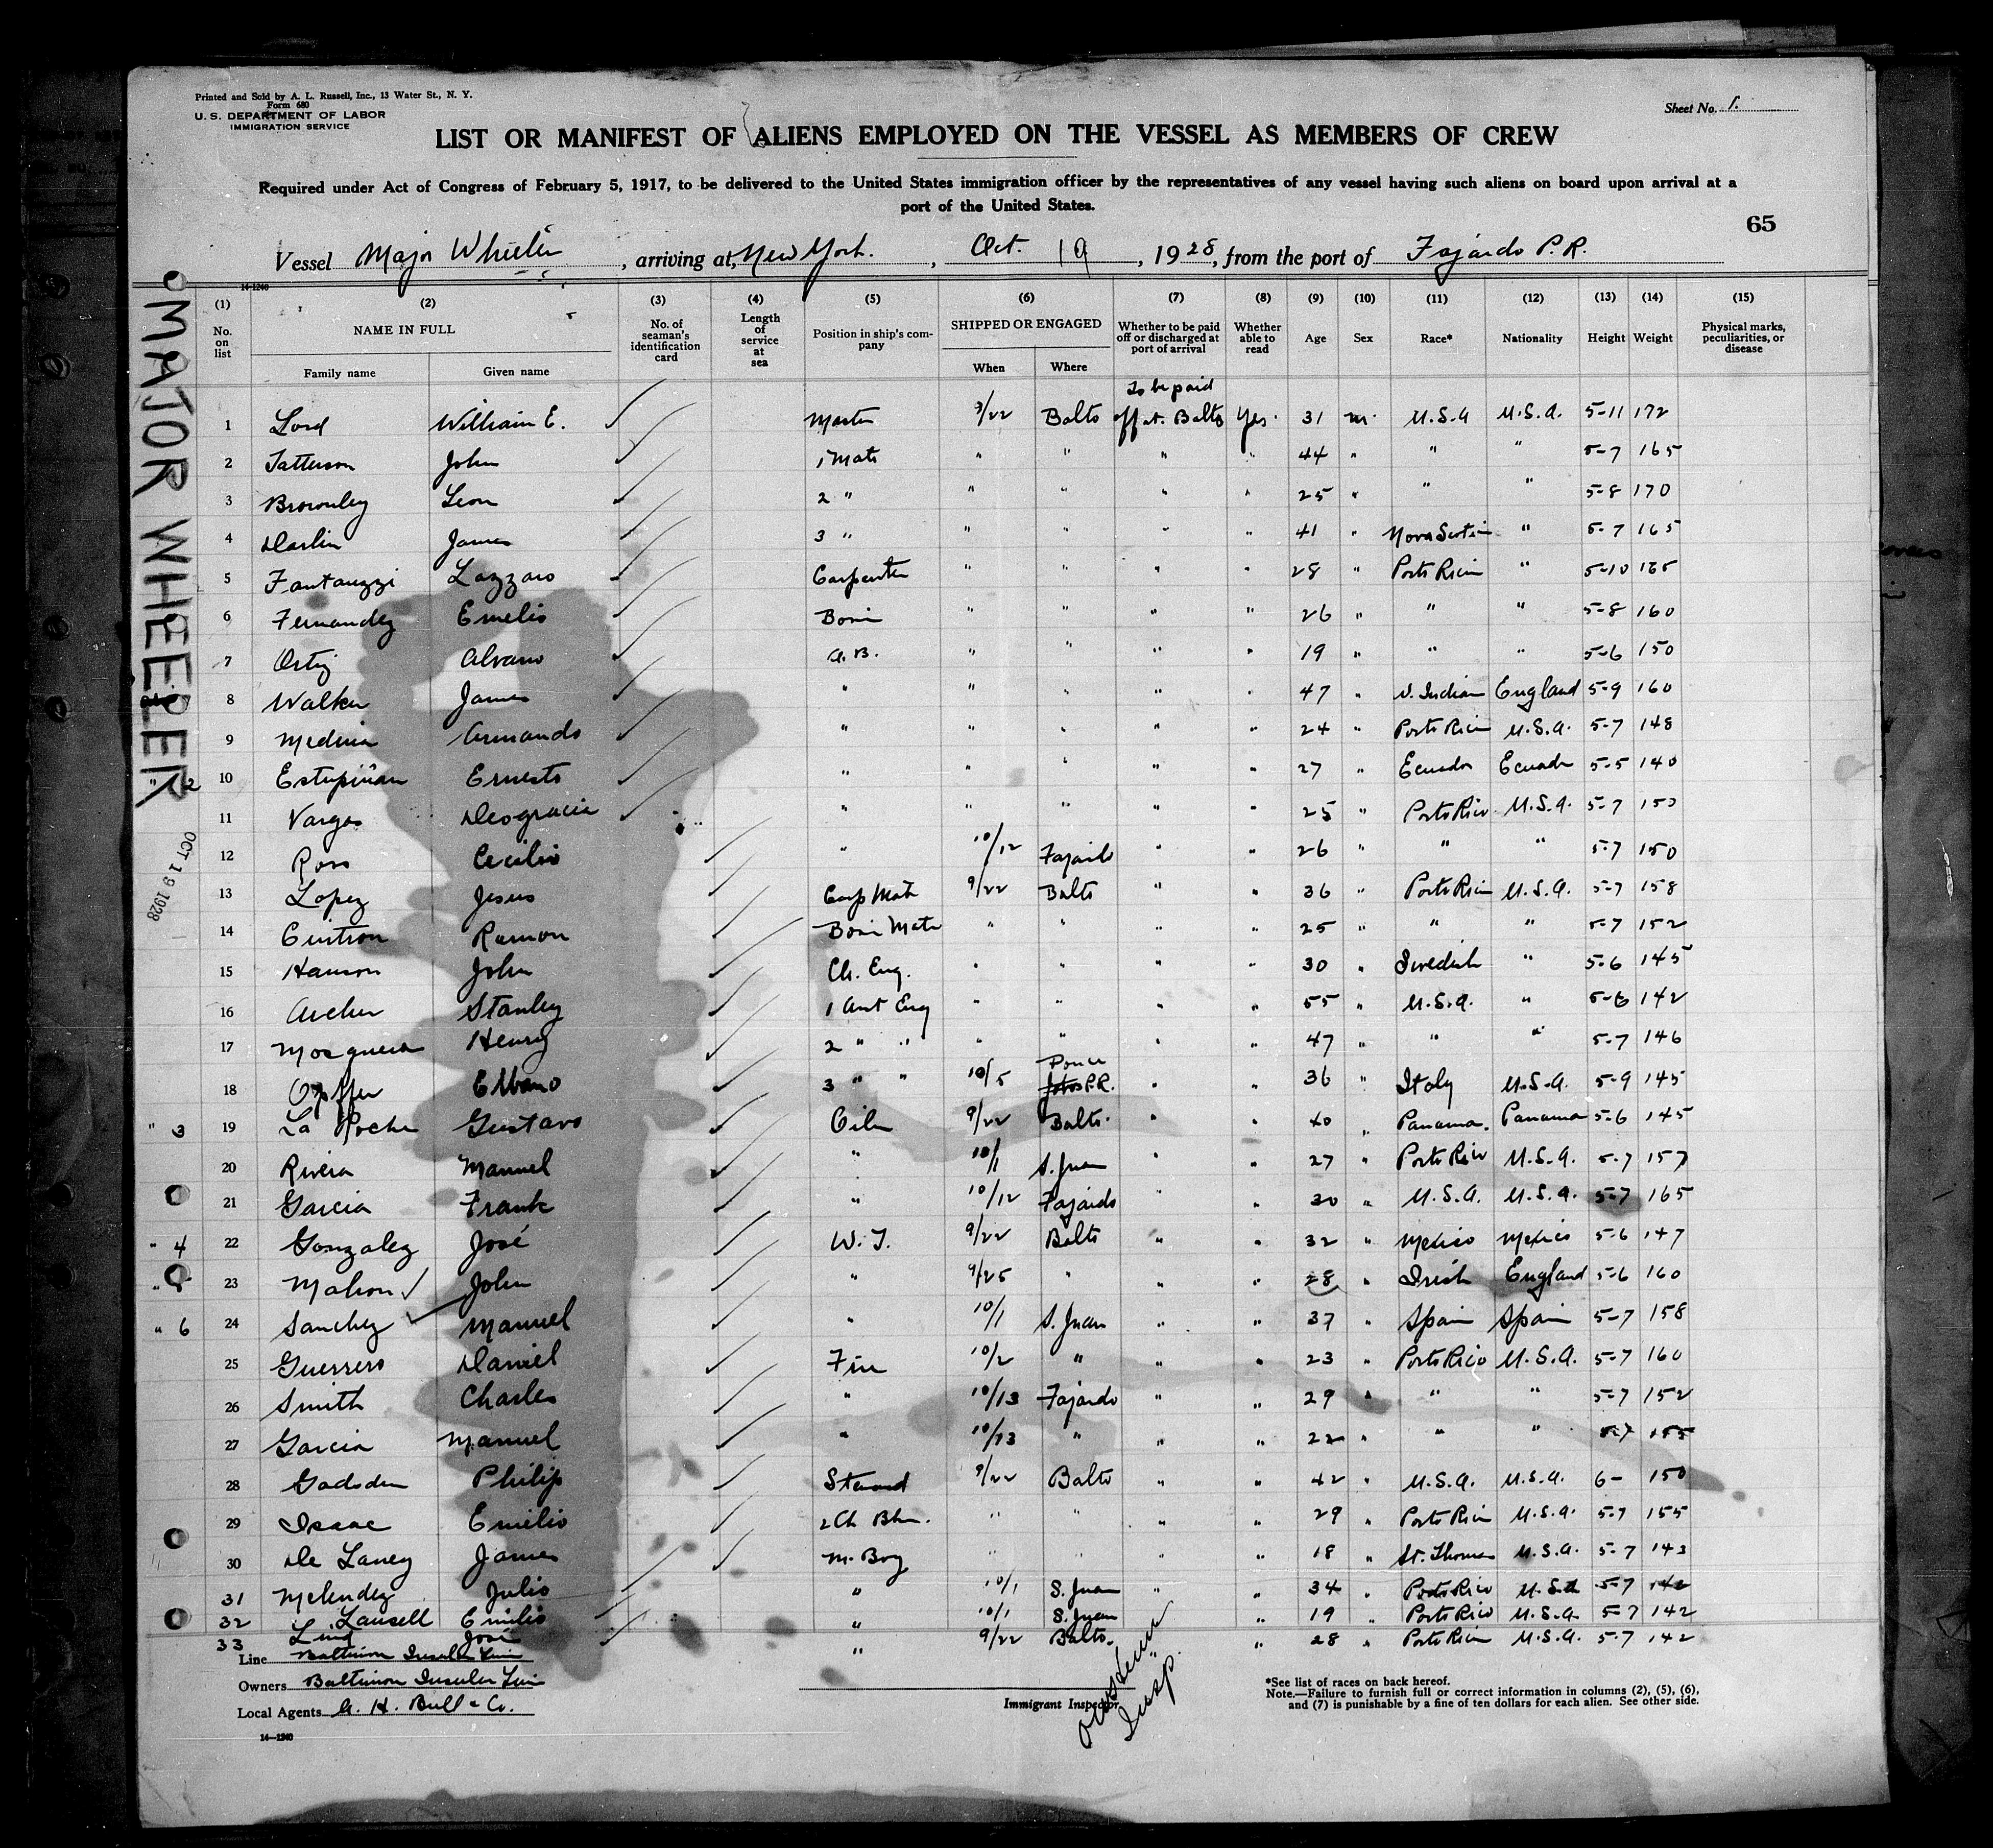 Printed and Sold by A. L. Russell, Inc., 13 Water St., N. Y.
Form 680
U. S. DEPARTMENT OF LABOR
IMMIGRATION SERVICE
Sheet No. 1.
LIST OR MANIFEST OF ALIENS EMPLOYED ON THE VESSEL AS MEMBERS OF CREW
Required under Act of Congress of February 5, 1917, to be delivered to the United States immigration officer by the representatives of any vessel having such aliens on board upon arrival at a
port of the United States.
65
Vessel Major Wheeler, arriving at, New York., Oct. 19, 1928, from the port of Fajardo P.R.
14-1240
(1) (2) (3) (4) (5) (6) (7) (8) (9) (10) (11) (12) (13) (14) (15)
No. on list NAME IN FULL Family name Given name No. of seaman's identification card Length of service at sea Position in ship's company SHIPPED OR ENGAGED When Where Whether to be paid off or discharged at port of arrival Whether able to read Age Sex Race* Nationality Height Weight Physical marks, peculiarities, or disease
MAJOR WHEELER
OCT 19 1928
to be paid
1 Lord William E. Master 9/22 Balto off at. Balto Yes. 31 m. U.S.A U.S.A. 5-11 172
2 Patterson John 1 Mate " " " " 44 " " " 5-7 165
3 Brownley Leon 2 " " " " " 25 " " " 5-8 170
4 James 3 " " " " " 41 " Nova Scotia " 5-7 165
5 Fantauzzi Lazzaro Carpenter " " " " 28 " Porto Rico " 5-10 165
6 Fernandez Emelio Bosn " " " " 26 " " " 5-8 160
7 Ortiz Alvaro A.B. " " " " 19 " " " 5-6 150
8 Walker James " " " " " 47 " W. Indian England 5-9 160
9 Medina Armando " " " " " 24 " Porto Rico U.S.A. 5-7 148
10 Estupiñan Ernesto " " " " " 27 " Ecuador Ecuador 5-5 140
11 Vargas Deogracia " " " " " 25 " Porto Rico U.S.A. 5-7 150
12 Ross Cecilio " 10/12 Fajardo " " 26 " " " 5-7 150
13 Lopez Jesus Carp Mate 9/22 Balto " " 36 " Porto Rico U.S.A. 5-7 158
14 Cintron Ramon Bosn Mate " " " " 25 " " " 5-7 152
15 Hanson John Ch. Eng. " " " " 30 " Swedish " 5-6 145
16 Archer Stanley 1 Asst Eng " " " " 55 " U.S.A. " 5-6 142
17 Mosquera Henry 2 " " " " " " 47 " " " 5-7 146
18 3 " " 10/5 Ponce P.R. " " 36 " Italy U.S.A. 5-9 145
" 3 19 La Roche Gustavo Oiler 9/22 Balto. " " 40 " Panama. Panama 5-6 145
20 Rivera Manuel " 10/1 S. Juan " " 27 " Porto Rico U.S.A. 5-7 157
21 Garcia Frank " 10/12 Fajardo " " 30 " U.S.A. U.S.A. 5-7 165
" 4 22 Gonzalez José W.T. 9/22 Balto " " 32 " Mexico Mexico 5-6 147
23 Mahon John " 9/25 " " " 28 " Irish England 5-6 160
" 6 24 Sanchez Manuel " 10/1 S. Juan " " 37 " Spain Spain 5-7 158
25 Guerrero Daniel Fire 10/2 " " " 23 " Porto Rico U.S.A. 5-7 160
26 Smith Charles " 10/13 Fajardo " " 29 " " " 5-7 152
27 Garcia Manuel " 10/13 " " " 22 " " " 5-7 155
28 Gadsden Philip Steward 9/22 Balto " " 42 " U.S.A. U.S.A. 6- 150
29 Isaac Emilio 2 Ck " " " " 29 " Porto Rico U.S.A. 5-7 155
30 De Laney James M. Boy " " " " 18 " St. Thomas U.S.A. 5-7 143
31 Melendez Julio " 10/1 S. Juan " " 34 " Porto Rico U.S.A 5-7 142
32 Lausell Emilio " 10/1 S. Juan " 19 " Porto Rico U.S.A. 5-7 142
33 José " 9/22 Balto. " 28 " Porto Rico U.S.A. 5-7 142
Line Baltimore Insular Line
Owners Baltimore Insular Line
Local Agents A. H. Bull & Co.
Immigrant Inspector.
Insp.
*See list of races on back hereof.
Note.—Failure to furnish full or correct information in columns (2), (5), (6),
and (7) is punishable by a fine of ten dollars for each alien. See other side.
14—1240